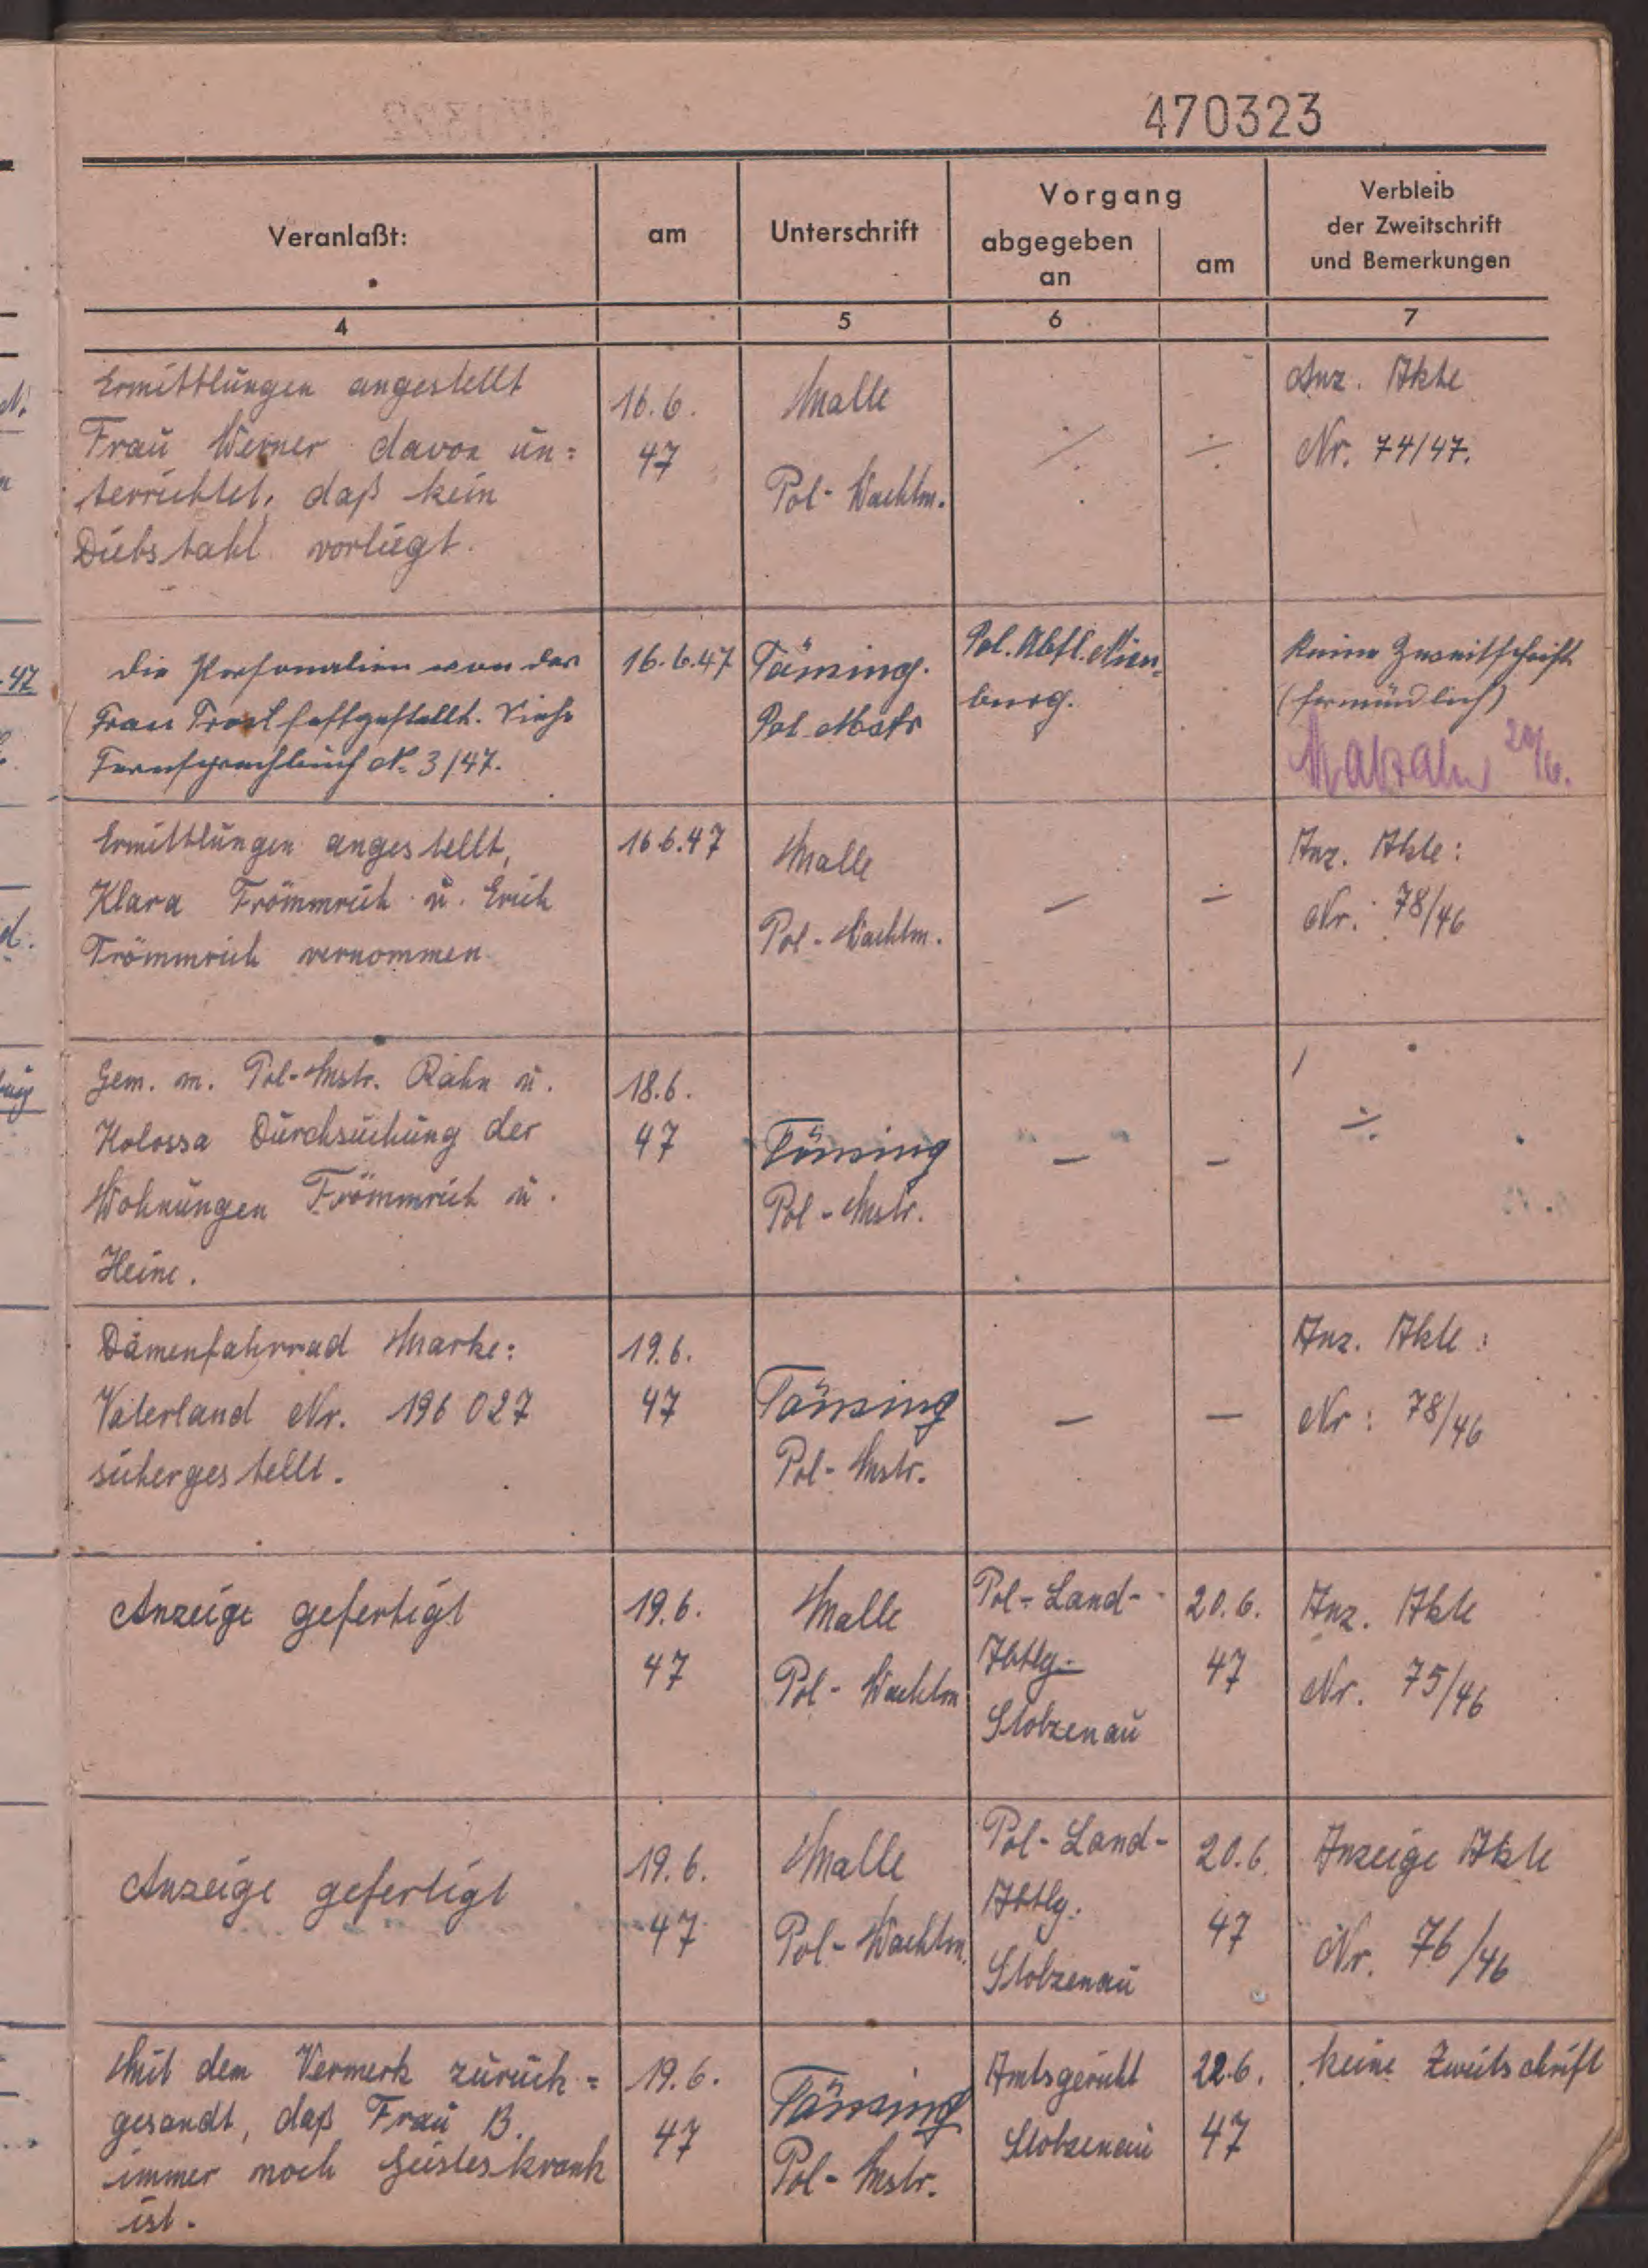 470323
Veranlaßt:
am
Unterschrift
Vorgang
abgegeben
an
am
Verbleib
der Zweitschrift
und Bemerkungen
4
5
6
7
Ermittlungen angestellt
Frau Werner davon un=
terrichtet, daß kein
Diebstahl vorliegt.
16.6.
47
Malle
Pol-Wachtm.
Anz. Akte
Nr. 74/47.
Die Personalien von der
Frau Trost festgestellt. Siehe
Fernsprechbuch No 3/47.
16.6.47
Pol. Mstr
Pol. Abtl. Nien=
burg.
Keine Zweitschrift
(fernmündlich)
20/6.
Ermittlungen angestellt,
Klara Frömmrich u. Erich
Frömmrich vernommen
16.6.47
Malle
Pol-Wachtm.
—
—
Anz. Akte:
Nr. 78/46
Gem. m. Pol-Mstr. Rahn u.
Kolossa Durchsuchung der
Wohnungen Frömmrich u.
Heine.
18.6.
47
Pol-Mstr.
—
—
Damenfahrrad Marke:
Vaterland Nr. 196 027
sichergestellt.
19.6.
47
Pol-Mstr.
—
—
Anz. Akte:
Nr: 78/46
Anzeige gefertigt
19.6.
47
Malle
Pol-Wachtm
Pol-Land-
Abtlg.
Stolzenau
20.6.
47
Anz. Akte
Nr. 75/46
Anzeige gefertigt
19.6.
47
Malle
Pol-Wachtm.
Pol-Land-
Abtlg.
Stolzenau
20.6.
47
Anzeige Akte
Nr. 76/46
Mit dem Vermerk zurück=
gesandt, daß Frau B.
immer noch Geisteskrank
ist.
19.6.
47
Pol-Mstr.
Amtsgericht
Stolzenau
22.6.
47
keine Zweitschrift